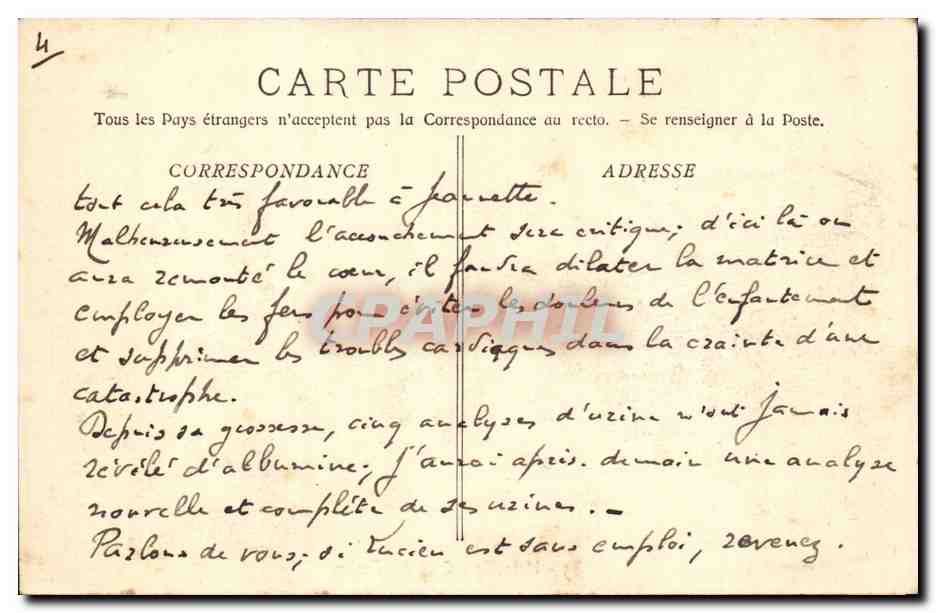 4
CARTE POSTALE
Tous les Pays étrangers n'acceptent pas la Correspondance au recto. – Se renseigner à la Poste.
CORRESPONDANCE
ADRESSE
tout cela très favorable à Jeannette.
Malheureusement l'accouchement sera critique; d'ici là on
aura remonté le cœur, il faudra dilater la matrice et
employer les fers pour éviter les douleurs de l'enfantement
et supprimer les troubles cardiaques dans la crainte d'une
catastrophe.
Depuis sa grossesse, cinq analyses d'urine n'ont jamais
révélé d'albumine; j'aurai après-demain une analyse
nouvelle et complète de ses urines. –
Parlons de vous; si Lucien est sans emploi, revenez.
CPAPHIL